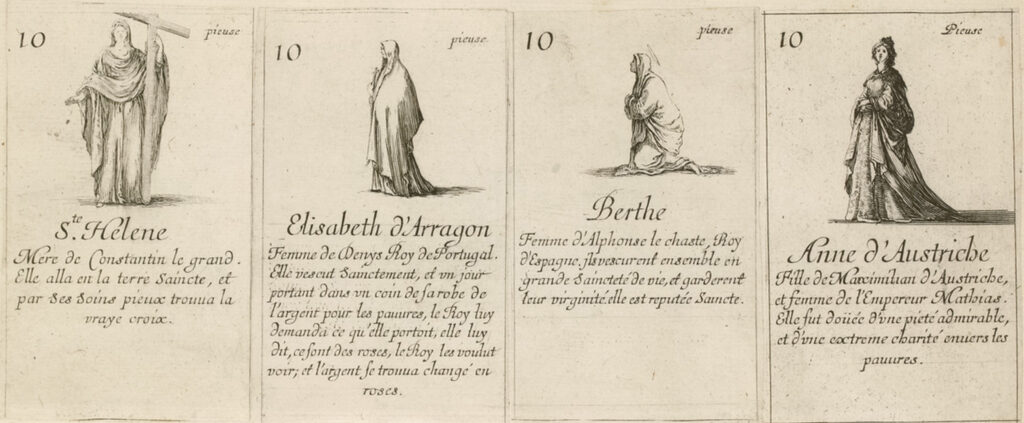 10
pieuse
S.te Helene
Mere de Constantin le grand.
Elle alla en la terre Saincte, et
par ses soins pieux trouua la
vraye croix.
10
pieuse
Elisabeth d'Arragon
Femme de Denys Roy de Portugal.
Elle vescut Sainctement, et vn jour
portant dans vn coin de sa robe de
l'argent pour les pauures, le Roy luy
demanda ce qu'elle portoit, elle luy
dit, ce sont des roses, le Roy les voulut
voir; et l'argent se trouua changé en
roses.
10
pieuse
Berthe
Femme d'Alphonse le chaste, Roy
d'Espagne, jls vescurent ensemble en
grande saincteté de vie, et garderent
leur virginité. elle est reputée Saincte.
10
Pieuse
Anne d'Austriche
Fille de Maximilian d'Austriche,
et femme de l'Empereur Mathias.
Elle fut doüée d'vne pieté admirable,
et d'vne extreme charité enuers les
pauures.